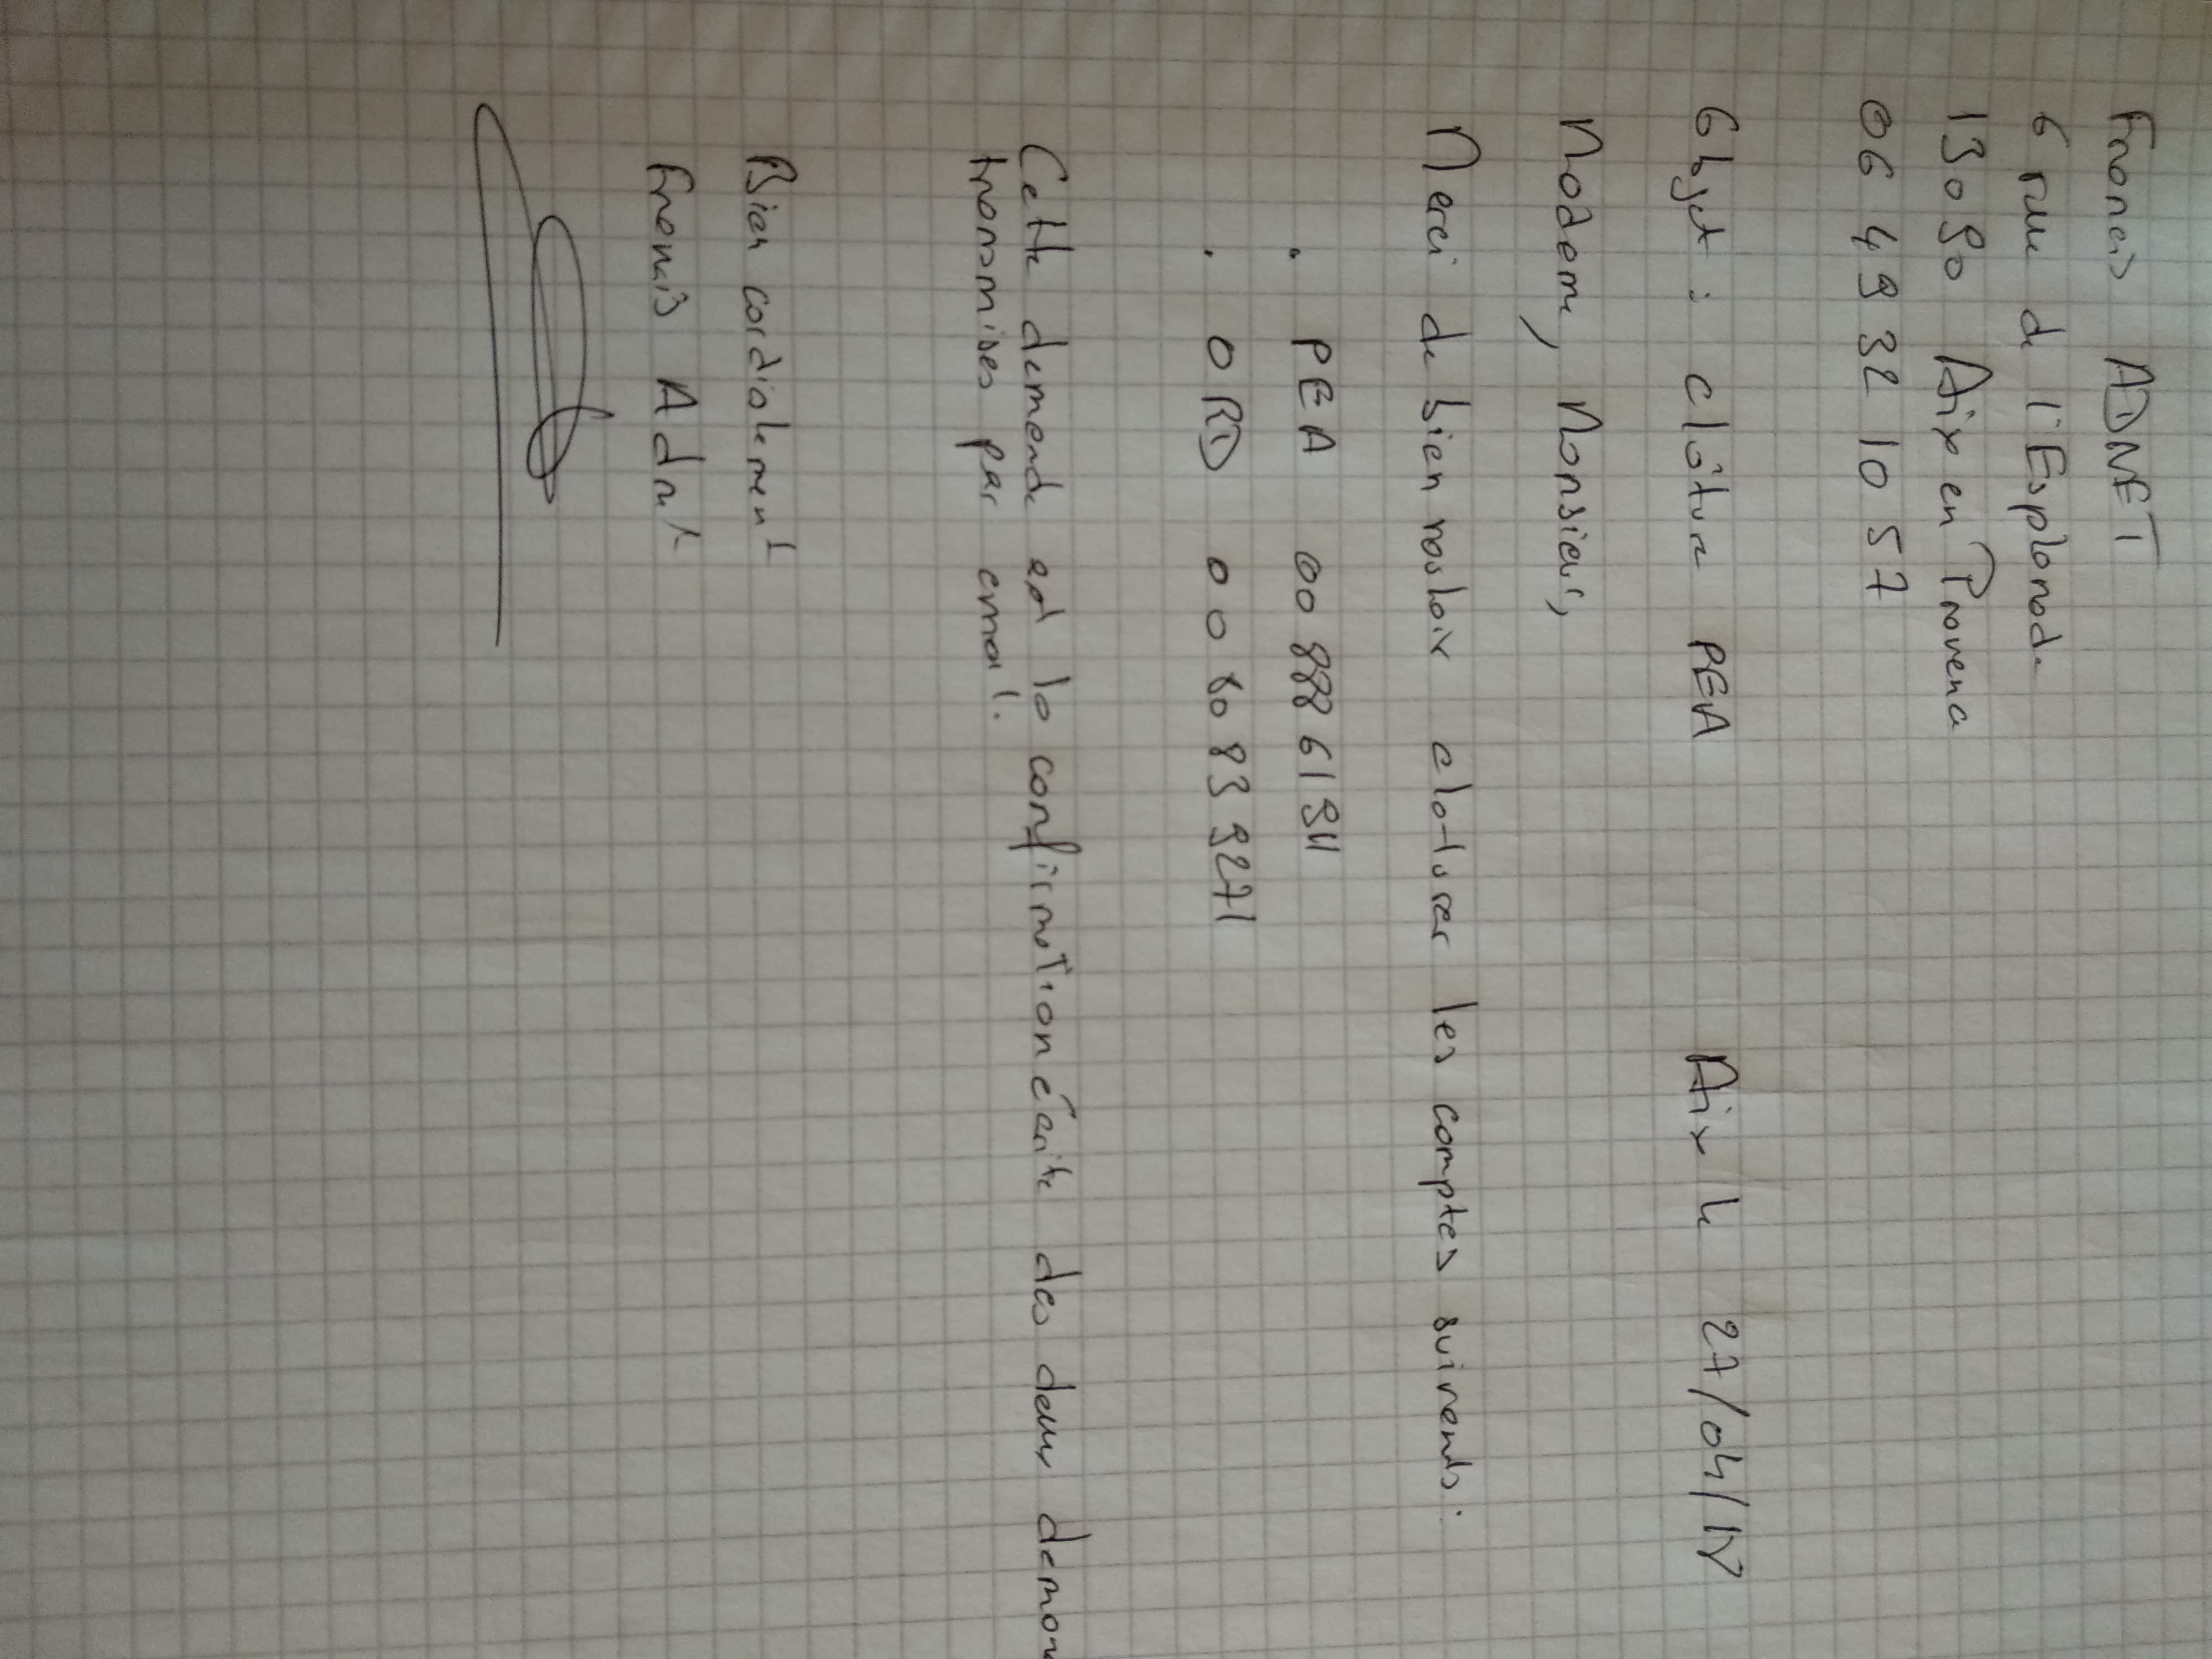 Francis ADNET
6 rue de l'Esplanade
13090 Aix en Provence
06 49 32 10 57
Objet : clôture PEA Aix le 27/04/18
Madame, Monsieur,
Merci de bien vouloir cloturer les comptes suivants :
. PEA 00 888 61 911
. ORD 00 80 83 9271
Cette demande est la confirmation écrite des deux
transmises par email.
Bien cordialement
Francis Adnet